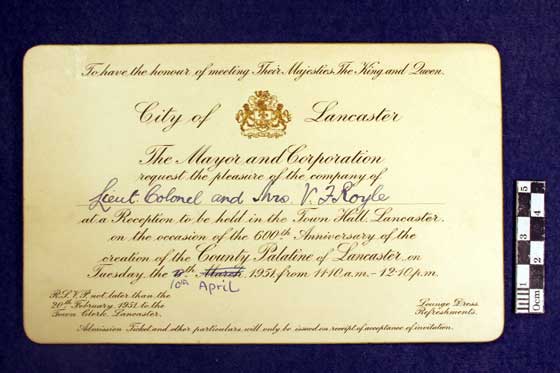 To have the honour of meeting Their Majesties The King and Queen.
City of Lancaster
The Mayor and Corporation
request the pleasure of the company of
Lieut. Colonel and Mrs V. F Royle
at a Reception to be held in the Town Hall, Lancaster.
on the occasion of the 600th Anniversary of the
creation of the County Palatine of Lancaster, on
Tuesday, the March, 1951, from 11·10 a.m. - 12·10 p.m.
10th April
R.S.V.P. not later than the
20th February, 1951, to the
Town Clerk, Lancaster.
Lounge Dress.
Refreshments.
Admission Ticket and other particulars will only be issued on receipt of acceptance of invitation.
5
4
3
2
1
0cm